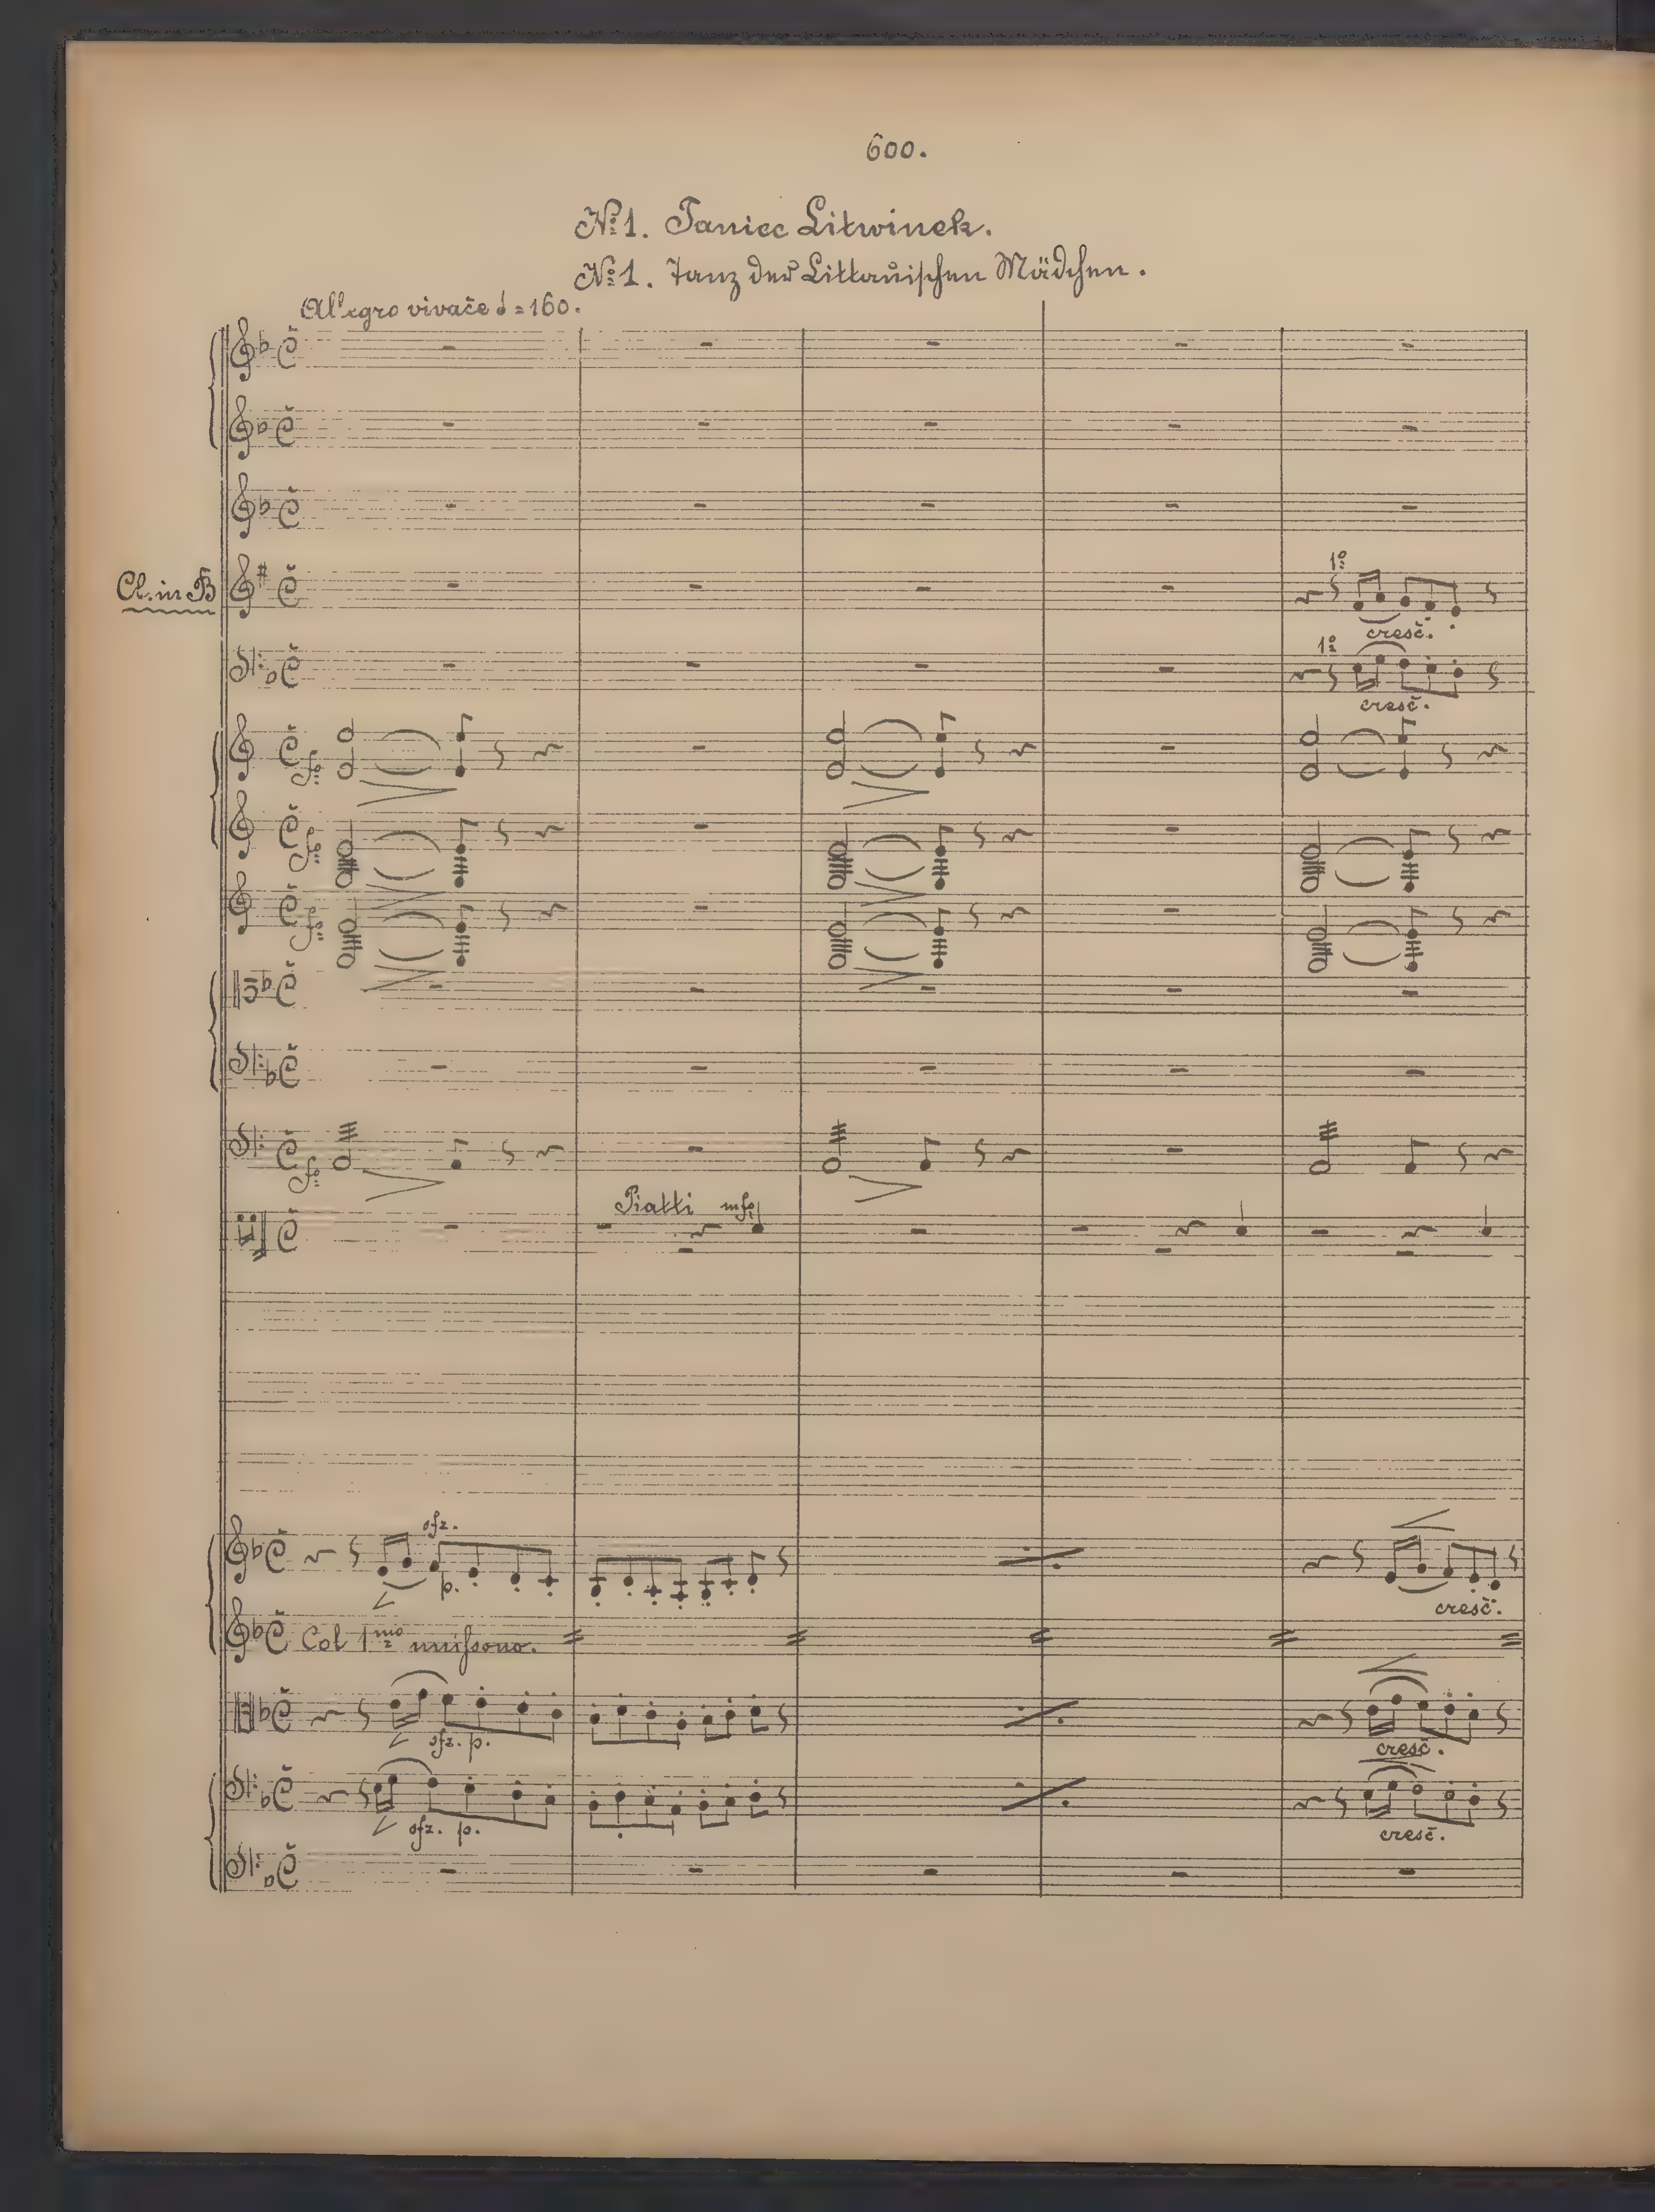 600.
№1. Taniec Litwinek.
№1. Tanz der Littauischen Mädchen.
Allegro vivače = 160.
1º
Cl. in B
cresč.
1º
cresč.
f
f
f
f
Piatti mf
sfz.
p.
cresč.
Col 1mo unissono.
sfz. p.
cresč.
sfz. p.
cresč.